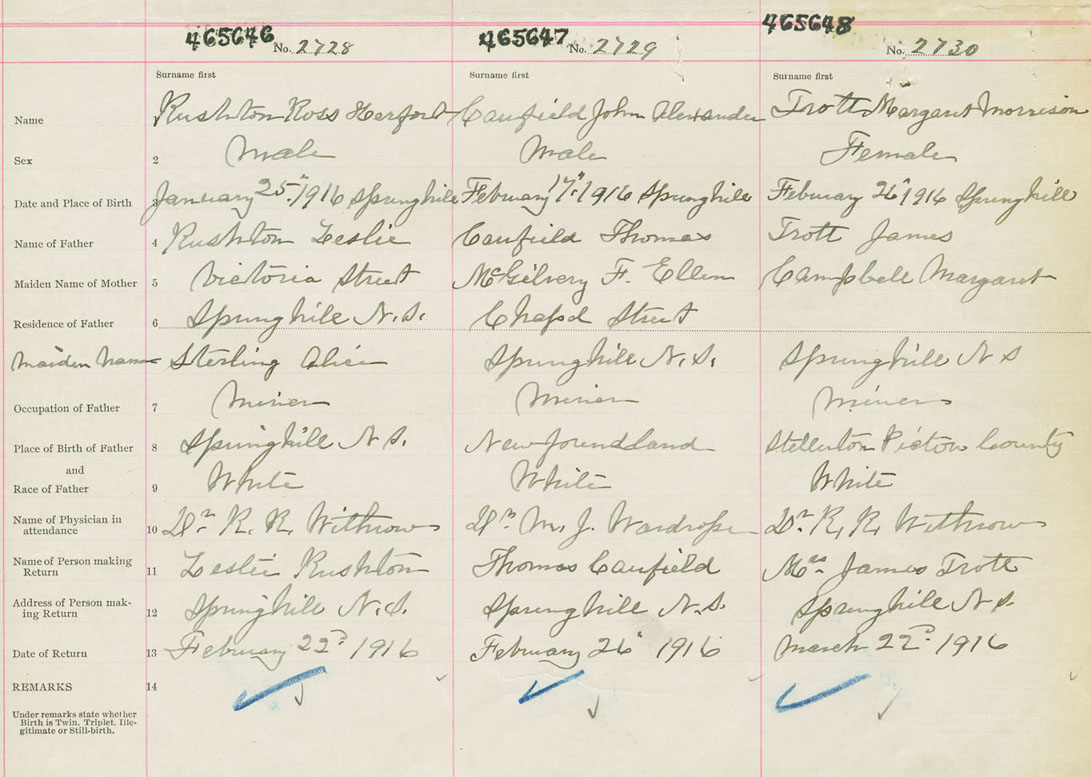 465646 No. 2728 465647 No. 2729 465648 No. 2730
Surname first Surname first Surname first
Name Rushton Ross Herford Caufield John Alexander Trott Margaret Morrison
Sex 2 Male Male Female
Date and Place of Birth 3 January 25" 1916 Springhill February 17" 1916 Springhill February 26" 1916 Springhill
Name of Father 4 Rushton Leslie Caufield Thomas Trott James
Maiden Name of Mother 5 Victoria Street McGilvery F. Ellen Campbell Margaret
Residence of Father 6 Springhill N.S. Chapel Street
Maiden Name Sterling Alice Springhill N.S. Springhill N S
Occupation of Father 7 Miner Miner Miner
Place of Birth of Father 8 Springhill N.S. Newfoundland Stellerton Pictou County
and
Race of Father 9 White White White
Name of Physician in
attendance 10 Dr. R. R. Withrow Dr. M. J. Wardrope Dr. R. R. Withrow
Name of Person making
Return 11 Leslie Rushton Thomas Caufield Mrs. James Trott
Address of Person mak-
ing Return 12 Springhill N.S. Springhill N.S. Springhill N S.
Date of Return 13 February 22nd 1916 February 26" 1916 March 22nd 1916
REMARKS 14
Under remarks state whether
Birth is Twin, Triplet, Ille-
gitimate or Still-birth.